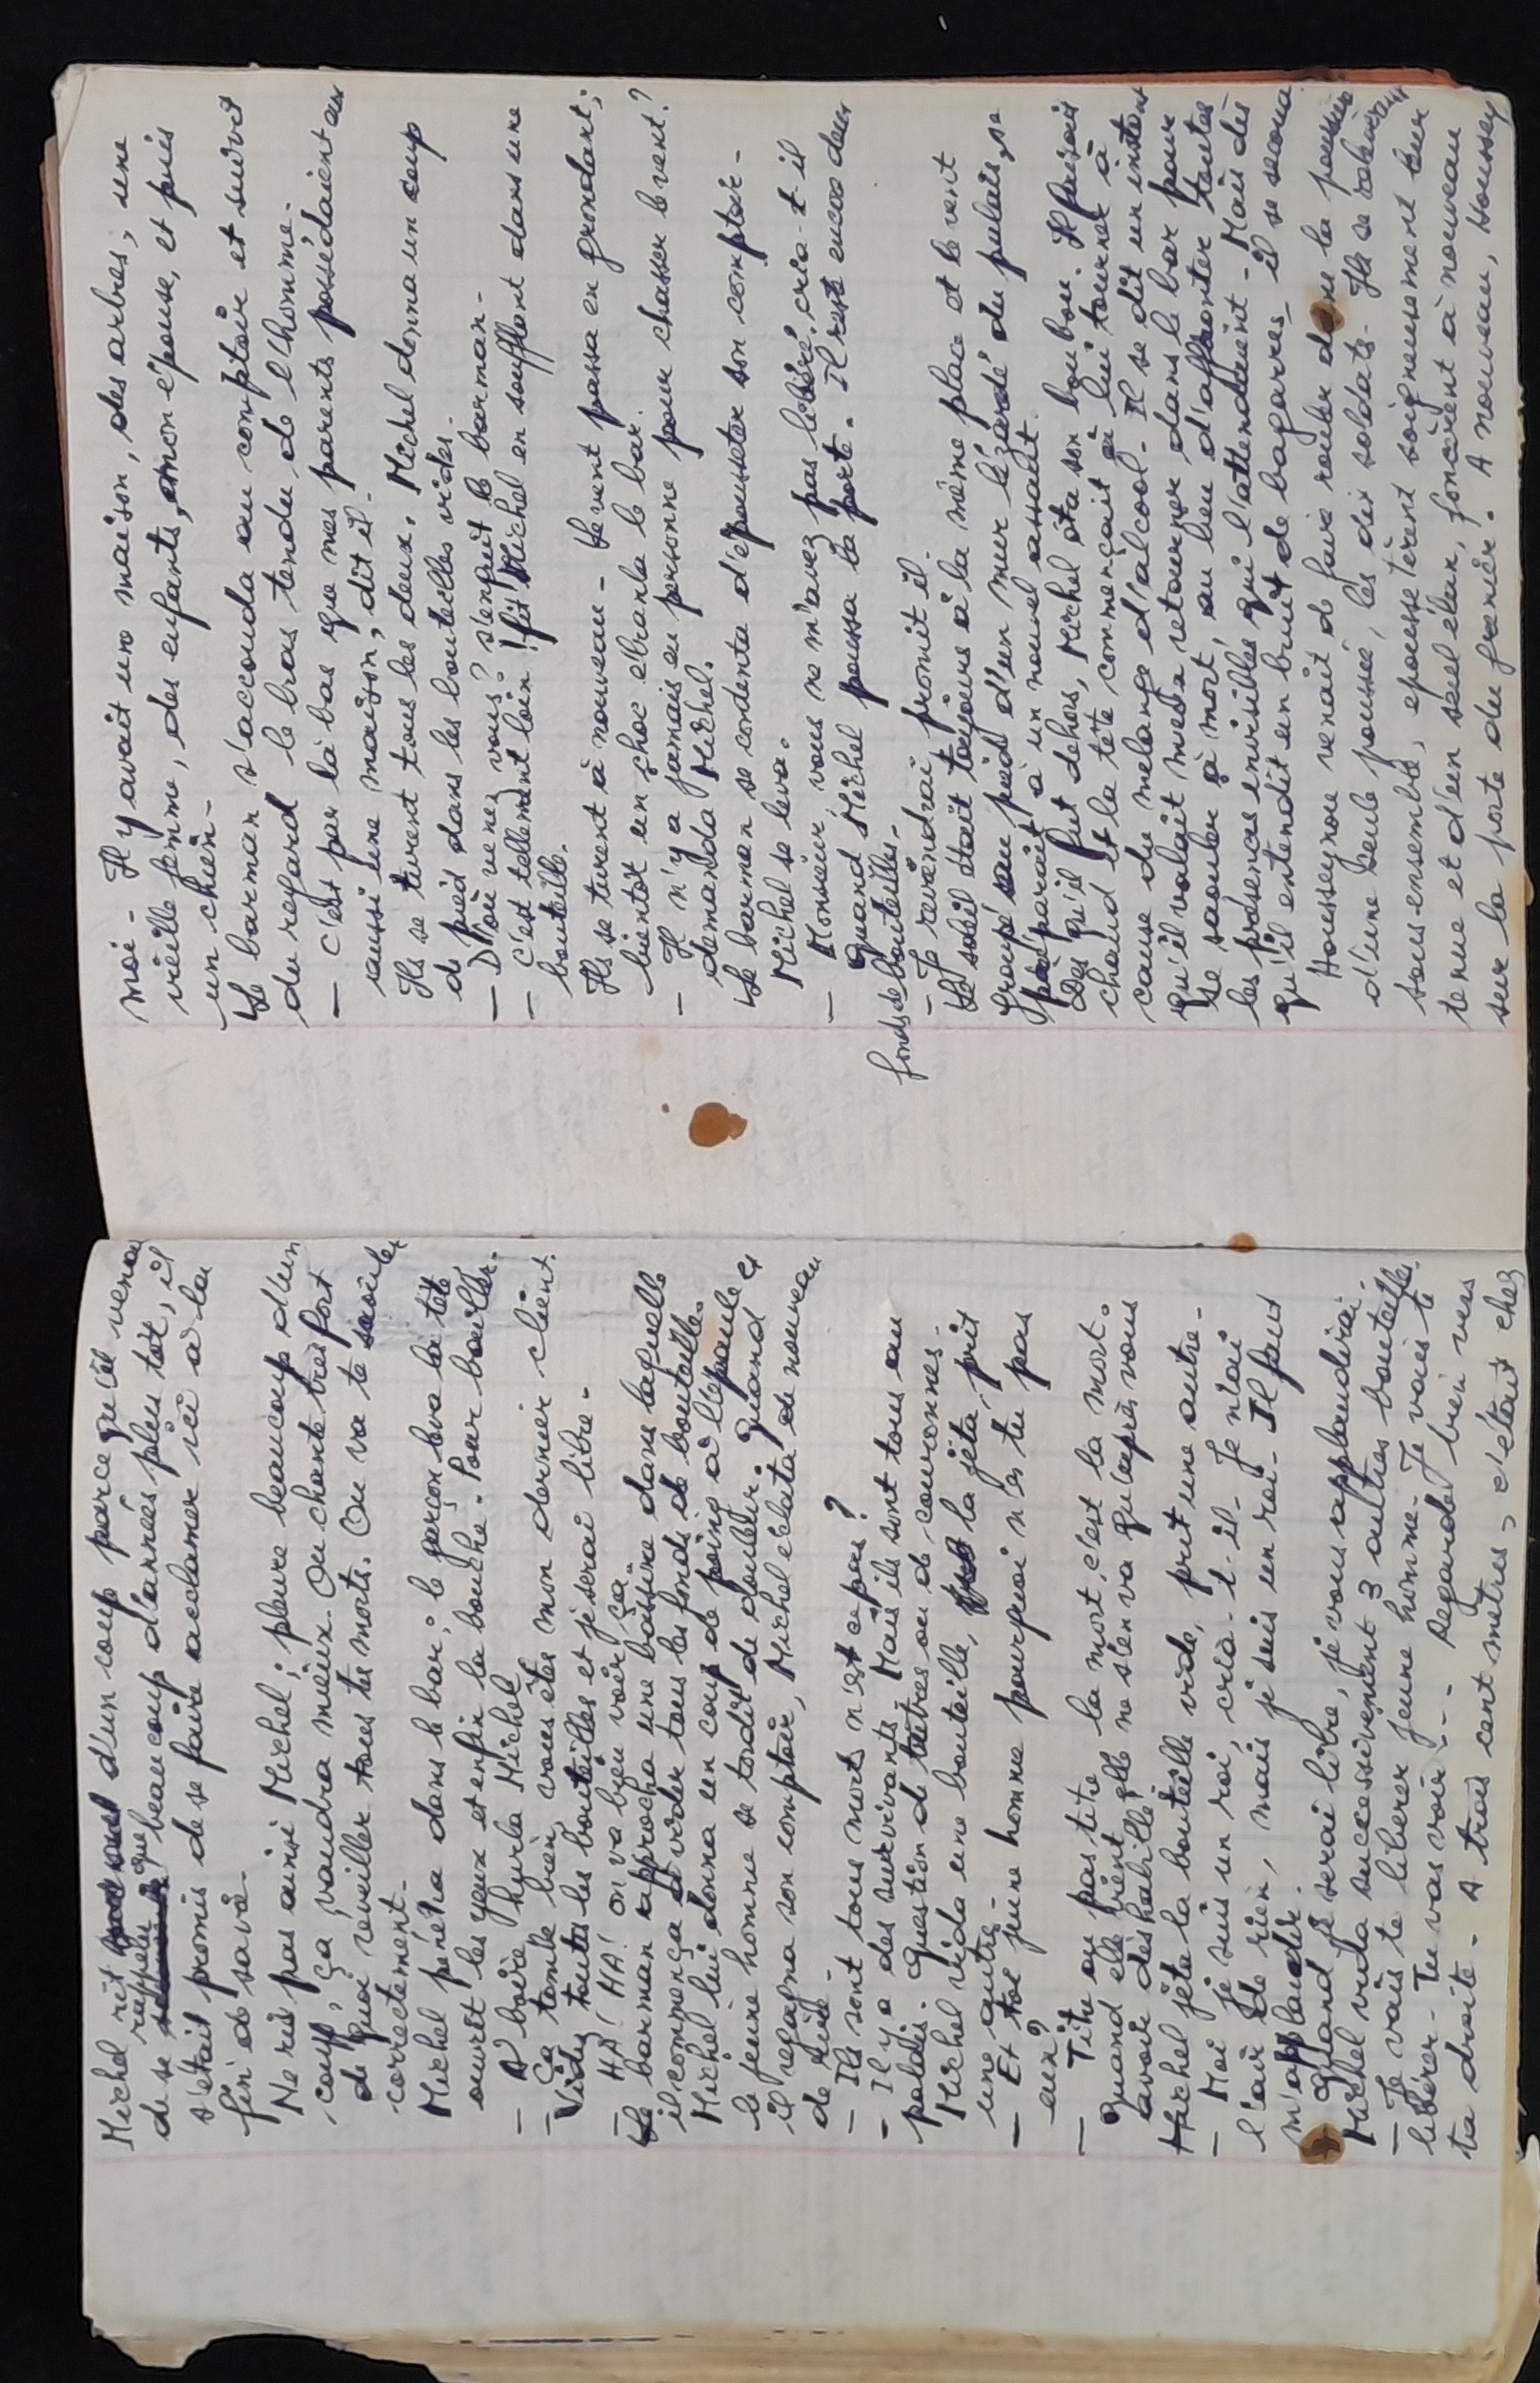 Michel rit d'un coup parce qu'il venait
de se rappeler que beaucoup d'années plus tôt, il
s'était promis de se faire acclamer ici à la
fin de sa vie -
Ne ris pas ainsi Michel ; pleure beaucoup d'un
coup, ça vaudra mieux. On chante très fort
de quoi réveiller tous tes morts. On va te saouler
correctement -
Michel pénétra dans le bar ; le garçon leva la tête
ouvrit les yeux et enfin la bouche. Pour bailler.
- A boire hurla Michel
- Ça tombe bien, vous êtes mon dernier client.
Videz toutes les bouteilles et je serai libre -
- HA ! HA ! on va bien voir ça.
Le barman approcha une bassine dans laquelle
il commença à vider tous les fonds de bouteille.
Michel lui donna un coup de poing à l'épaule et
le jeune homme se tordit de douleur. Quand
il regagna son comptoir, Michel éclata de nouveau
de rire -
- Ils sont tous morts n'est ce pas ?
- Il y a des survivants - Mais ils sont tous au
palais. Question de titres ou de couronnes -
Michel vida une bouteille, la jeta, prit
une autre -
- Et toi jeune homme pourquoi n'es tu pas
eux ?
- Titre ou pas titre la mort, c'est la mort.
Quand elle vient, elle ne s'en va qu'après vous
avoir déshabillé !
Michel jeta la bouteille vide, prit une autre -
- Moi je suis un roi, cria-t-il - Je n'ai
l'air de rien, mais je suis un roi - Il faut
m'applaudir.
- Quand je serai libre, je vous applaudirai.
Michel vida successivement 3 autres bouteilles.
- Je vais te libérer jeune homme - Je vais te
libérer - Tu vas voir - - Regarde bien vers
ta droite - A trois cent mètres, c'était chez
moi - Il y avait une maison, des arbres, une
vieille femme, des enfants, mon épouse, et puis
un chien -
Le barman s'accouda au comptoir et suivit
du regard le bras tendu de l'homme -
- C'est par là bas que mes parents possédaient eux
aussi une maison, dit il -
Ils se turent tous les deux. Michel donna un coup
de pied dans les bouteilles vides.
- D'où venez vous ? s'enquit le barman -
- C'est tellement loin ! fit Michel en soufflant dans une
bouteille.
Ils se turent à nouveau - Le vent passa en grondant ;
bientôt un choc ébranla le bar.
- Il n'y a jamais eu personne pour chasser le vent ?
demanda Michel.
Le barman se contenta d'épousseter son comptoir -
Michel se leva.
- Monsieur, vous ne m'avez pas libéré. cria-t-il
Quand Michel poussa la porte. Il reste encore deux
fonds de bouteilles -
- Je reviendrai, promit il.
Le soleil était toujours à la même place et le vent
groupé au pied d'un mur lézardé du palais, se
préparait à un nouvel assaut.
Dès qu'il fut dehors, Michel ôta son boubou. Il faisait
chaud et la tête commençait à lui tourner à
cause du mélange d'alcool - Il se dit un instant
qu'il valait mieux retourner dans le bar pour
se saouler à mort, au lieu d'affronter toutes
les présences invisibles qui l'attendaient - Mais dès
qu'il entendit un bruit de bagarres - il se secoua
Housseynou venait de faire rouler dans la poussière
d'une seule poussée, les dix soldats - Ils se relevèrent
tous ensemble, epoussetèrent soigneusement leur
tenue et d'un seul élan, foncèrent à nouveau
sur la porte du grenier. A nouveau, Houssey